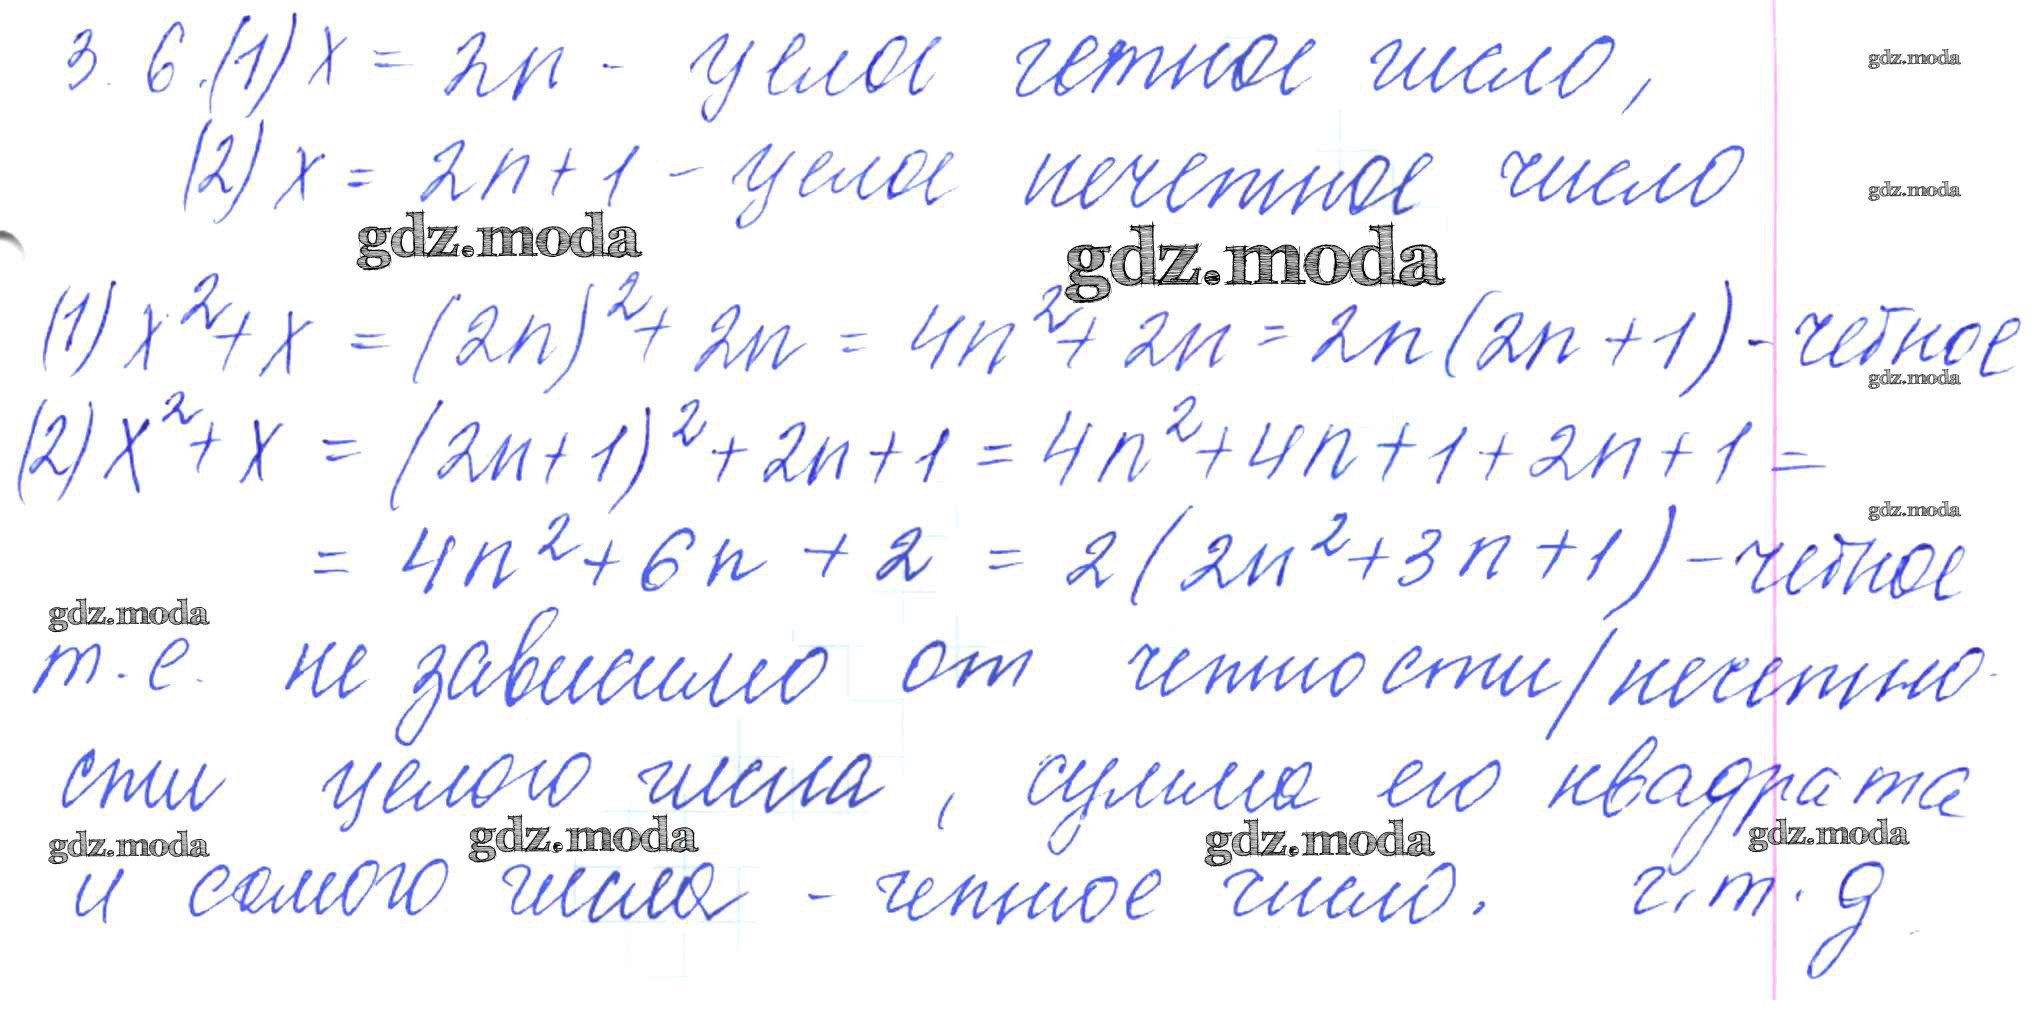 3.6. (1) x = 2n - целое четное число,
gdz.moda
(2) x = 2n+1 - целое нечетное число
gdz.moda
gdz.moda
gdz.moda
(1) x²+x = (2n)²+2n = 4n²+2n = 2n(2n+1) - четное
gdz.moda
(2) x²+x = (2n+1)²+2n+1 = 4n²+4n+1+2n+1 =
gdz.moda
= 4n²+6n+2 = 2(2n²+3n+1) - четное
gdz.moda
т.е. не зависимо от четности/нечетно-
сти целого числа, сумма его квадрата
gdz.moda
gdz.moda
gdz.moda
gdz.moda
и самого числа - четное число. ч.т.д